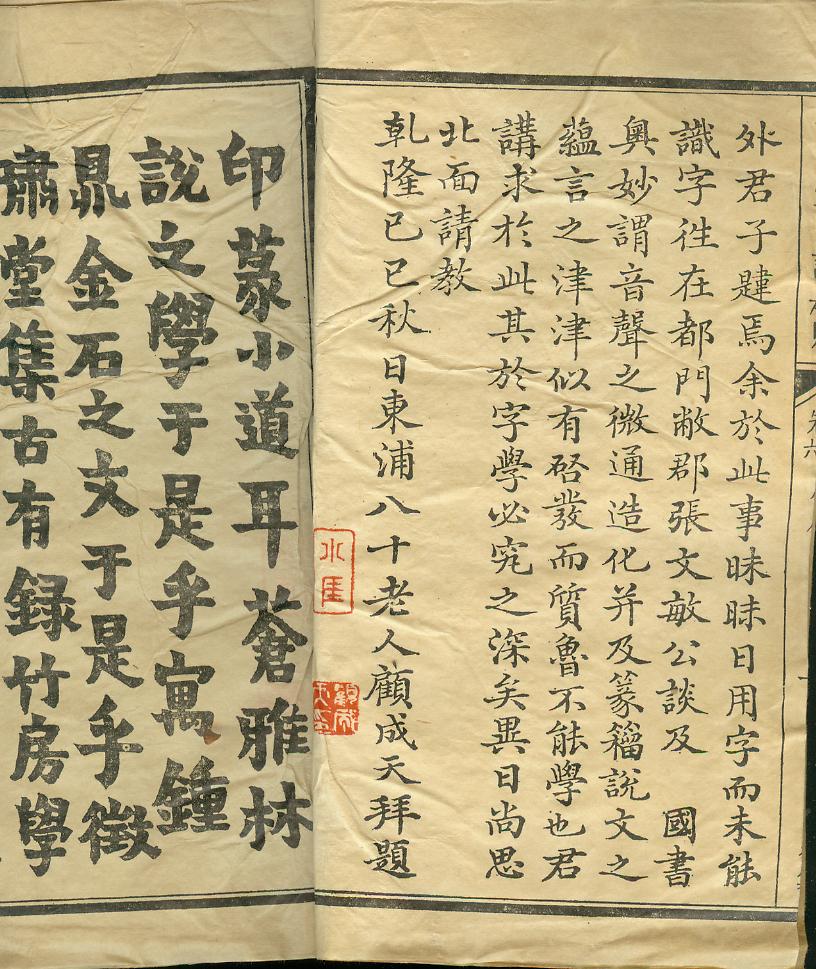 外君子韙焉余於此事昧昧日用字而未能
識字徃在都門敝郡張文敏公談及 國書
奥妙謂音聲之微通造化并及篆籀說文之
蘊言之津津似有啓發而質魯不能學也君
講求於此其於字學必究之深矣異日尚思
北面請教
乹隆己巳秋日東浦八十老人顧成天拜題
印篆小道耳蒼雅林
說之學于是乎寓鍾
鼎金石之文于是乎徵
肅堂集古有録竹房學